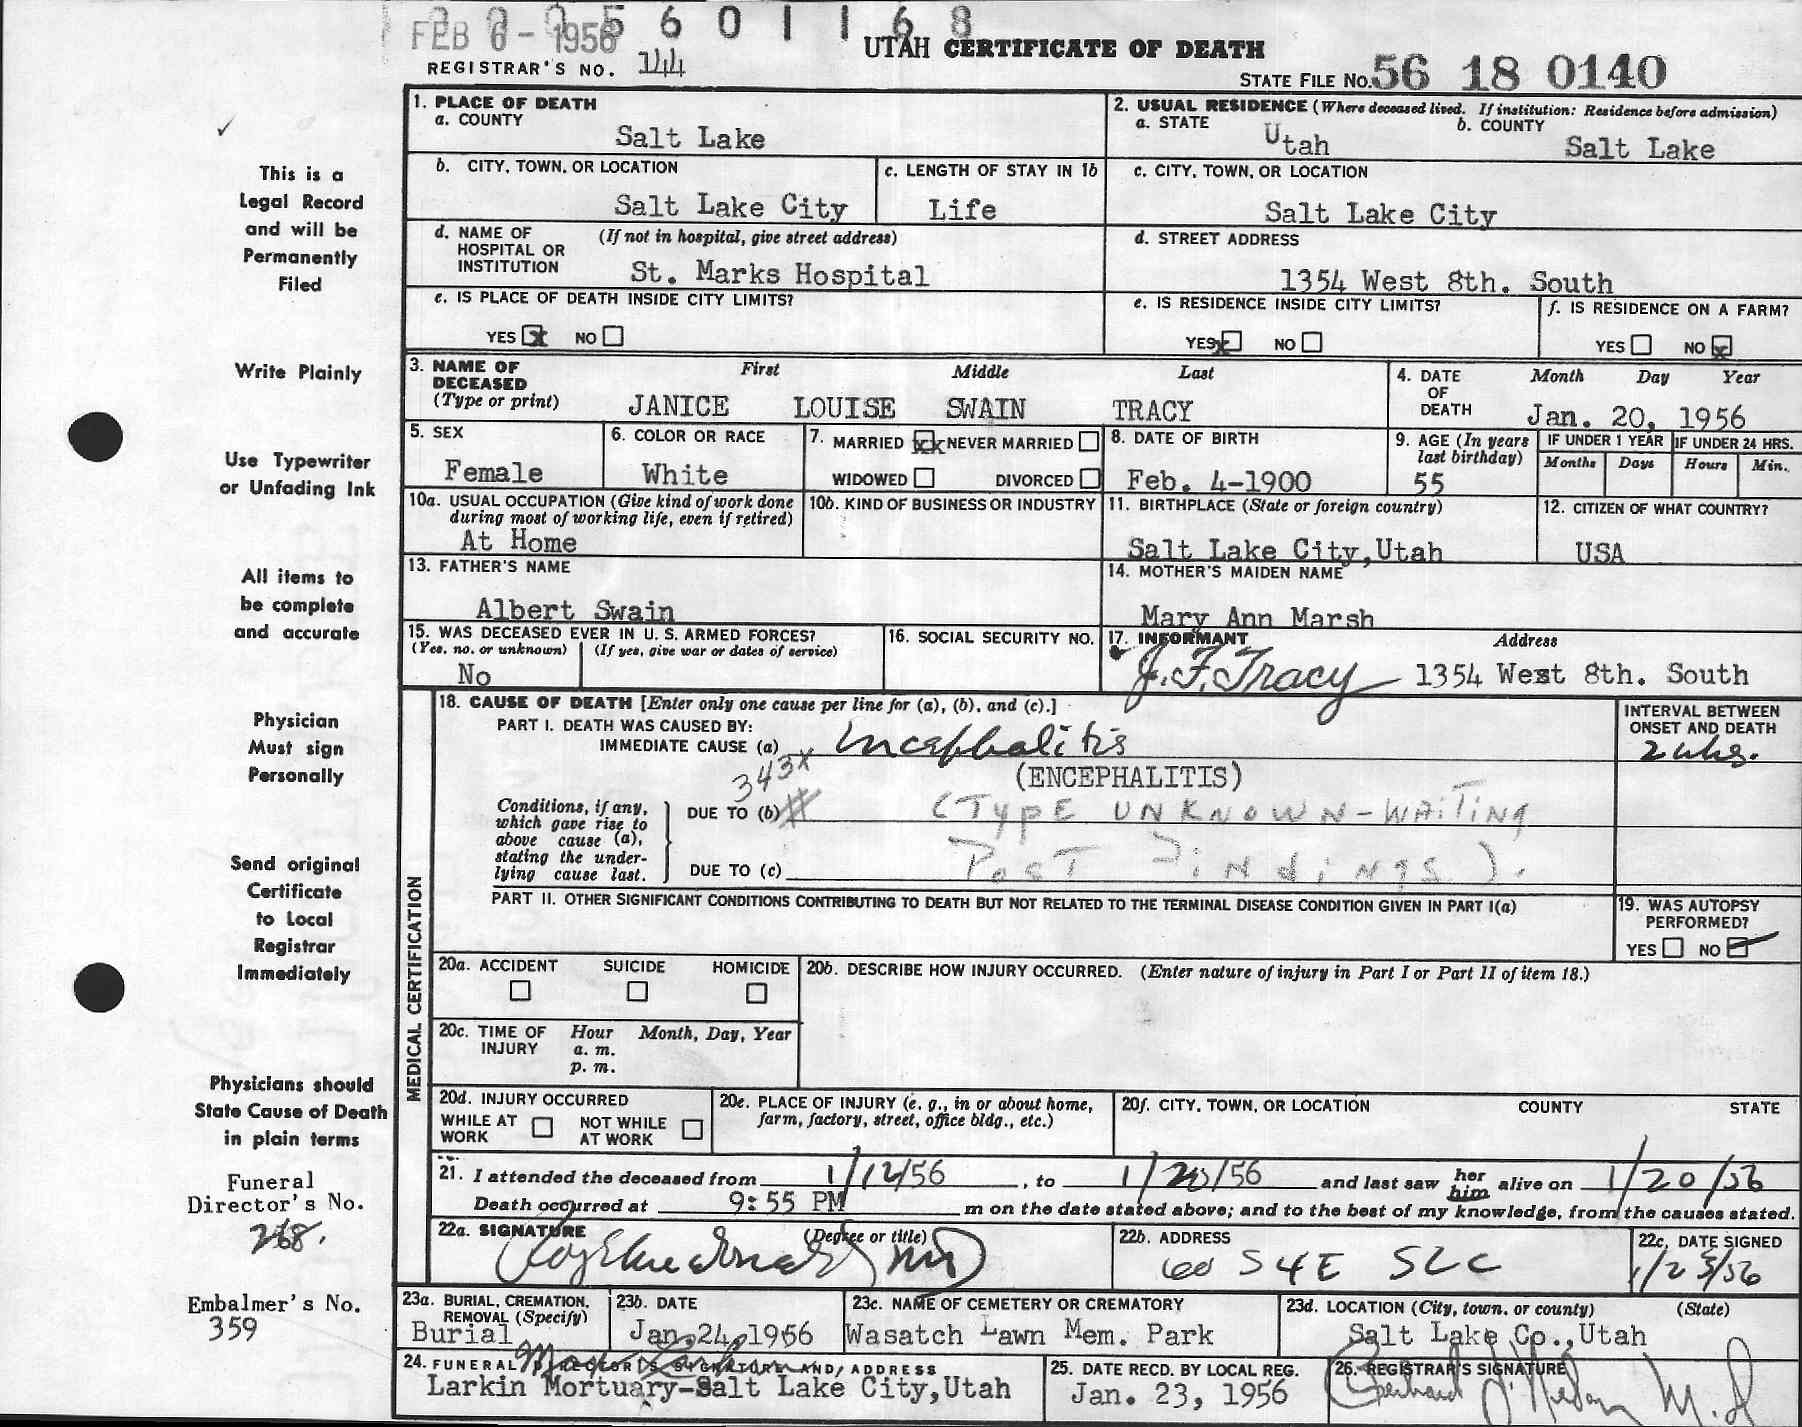 2005601168
FEB 6 - 1956
UTAH CERTIFICATE OF DEATH
REGISTRAR'S NO. 144
STATE FILE NO. 56 18 0140
This is a
Legal Record
and will be
Permanently
Filed
Write Plainly
Use Typewriter
or Unfading Ink
All items to
be complete
and accurate
Physician
Must sign
Personally
Send original
Certificate
to Local
Registrar
Immediately
Physicians should
State Cause of Death
in plain terms
Funeral
Director's No.
268.
Embalmer's No.
359
1. PLACE OF DEATH
a. COUNTY
Salt Lake
2. USUAL RESIDENCE (Where deceased lived. If institution: Residence before admission)
a. STATE Utah b. COUNTY Salt Lake
b. CITY, TOWN, OR LOCATION
Salt Lake City
c. LENGTH OF STAY IN 1b
Life
c. CITY, TOWN, OR LOCATION
Salt Lake City
d. NAME OF (If not in hospital, give street address)
HOSPITAL OR
INSTITUTION St. Marks Hospital
d. STREET ADDRESS
1354 West 8th. South
e. IS PLACE OF DEATH INSIDE CITY LIMITS?
YES x NO
e. IS RESIDENCE INSIDE CITY LIMITS?
YES x NO
f. IS RESIDENCE ON A FARM?
YES NO x
3. NAME OF First Middle Last
DECEASED
(Type or print) JANICE LOUISE SWAIN TRACY
4. DATE Month Day Year
OF
DEATH Jan. 20, 1956
5. SEX
Female
6. COLOR OR RACE
White
7. MARRIED xx NEVER MARRIED
WIDOWED DIVORCED
8. DATE OF BIRTH
Feb. 4-1900
9. AGE (In years
last birthday)
55
IF UNDER 1 YEAR
Months Days
IF UNDER 24 HRS.
Hours Min.
10a. USUAL OCCUPATION (Give kind of work done
during most of working life, even if retired)
At Home
10b. KIND OF BUSINESS OR INDUSTRY
11. BIRTHPLACE (State or foreign country)
Salt Lake City,Utah
12. CITIZEN OF WHAT COUNTRY?
USA
13. FATHER'S NAME
Albert Swain
14. MOTHER'S MAIDEN NAME
Mary Ann Marsh
15. WAS DECEASED EVER IN U. S. ARMED FORCES?
(Yes, no. or unknown) (If yes, give war or dates of service)
No
16. SOCIAL SECURITY NO.
17. INFORMANT Address
J. F. Tracy 1354 West 8th. South
MEDICAL CERTIFICATION
18. CAUSE OF DEATH [Enter only one cause per line for (a), (b), and (c).]
PART I. DEATH WAS CAUSED BY:
IMMEDIATE CAUSE (a) Encephalitis
343X (ENCEPHALITIS)
INTERVAL BETWEEN
ONSET AND DEATH
2 wks.
Conditions, if any,
which gave rise to
above cause (a),
stating the under-
lying cause last.
DUE TO (b) (TYPE UNKNOWN-WAITING
DUE TO (c) POST FINDINGS).
PART II. OTHER SIGNIFICANT CONDITIONS CONTRIBUTING TO DEATH BUT NOT RELATED TO THE TERMINAL DISEASE CONDITION GIVEN IN PART I(a)
19. WAS AUTOPSY
PERFORMED?
YES NO
20a. ACCIDENT SUICIDE HOMICIDE
20b. DESCRIBE HOW INJURY OCCURRED. (Enter nature of injury in Part I or Part II of item 18.)
20c. TIME OF Hour Month, Day, Year
INJURY a. m.
p. m.
20d. INJURY OCCURRED
WHILE AT NOT WHILE
WORK AT WORK
20e. PLACE OF INJURY (e. g., in or about home,
farm, factory, street, office bldg., etc.)
20f. CITY, TOWN, OR LOCATION COUNTY STATE
21. I attended the deceased from 1/12/56, to 1/20/56 and last saw her him alive on 1/20/56
Death occurred at 9:55 PM m on the date stated above; and to the best of my knowledge, from the causes stated.
22a. SIGNATURE (Degree or title)
MD
22b. ADDRESS
60 S 4 E SLC
22c. DATE SIGNED
1/23/56
23a. BURIAL, CREMATION,
REMOVAL (Specify)
Burial
23b. DATE
Jan. 24, 1956
23c. NAME OF CEMETERY OR CREMATORY
Wasatch Lawn Mem. Park
23d. LOCATION (City, town, or county) (State)
Salt Lake Co.,Utah
24. FUNERAL DIRECTOR'S SIGNATURE AND ADDRESS
Larkin Mortuary-Salt Lake City,Utah
25. DATE RECD. BY LOCAL REG.
Jan. 23, 1956
26. REGISTRAR'S SIGNATURE
M.D